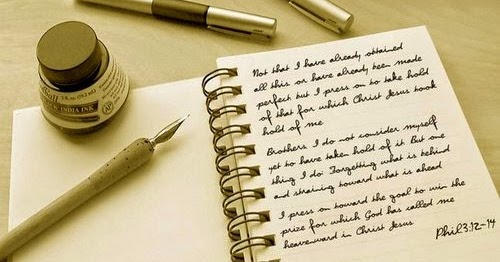 INDIA INK
Not that I have already obtained
all this or have already been made
perfect but I press on to take hold
of that for which Christ Jesus took
hold of me
Brothers I do not consider myself
yet to have taken hold of it. But one
thing I do: Forgetting what is behind
and straining toward what is ahead
I press on toward the goal to win the
prize for which God has called me
heavenward in Christ Jesus
Phil3:12-14